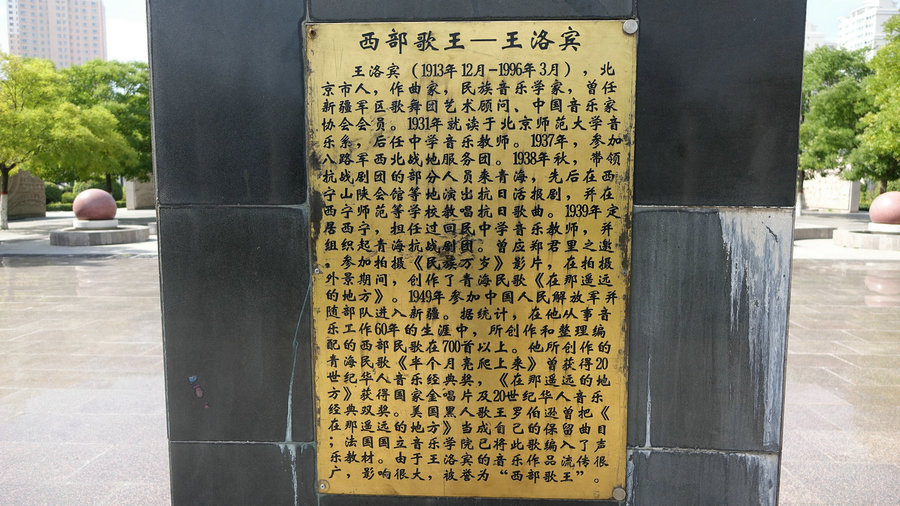 西部歌王—王洛宾
王洛宾（1913年12月-1996年3月），北
京市人，作曲家，民族音乐学家，曾任
新疆军区歌舞团艺术顾问、中国音乐家
协会会员。1931年就读于北京师范大学音
乐系，后任中学音乐教师。1937年，参加
八路军西北战地服务团。1938年秋，带领
抗战剧团的部分人员来青海，先后在西
宁山陕会馆等地演出抗日活报剧，并在
西宁师范等学校教唱抗日歌曲。1939年定
居西宁，担任过回民中学音乐教师，并
组织起青海抗战剧团。曾应郑君里之邀
，参加拍摄《民族万岁》影片，在拍摄
外景期间，创作了青海民歌《在那遥远
的地方》。1949年参加中国人民解放军并
随部队进入新疆。据统计，在他从事音
乐工作60年的生涯中，所创作和整理编
配的西部民歌在700首以上。他所创作的
青海民歌《半个月亮爬上来》曾获得20
世纪华人音乐经典奖，《在那遥远的地
方》获得国家金唱片及20世纪华人音乐
经典双奖。美国黑人歌王罗伯逊曾把《
在那遥远的地方》当成自己的保留曲目
；法国国立音乐学院已将此歌编入了声
乐教材。由于王洛宾的音乐作品流传很
广，影响很大，被誉为“西部歌王”。